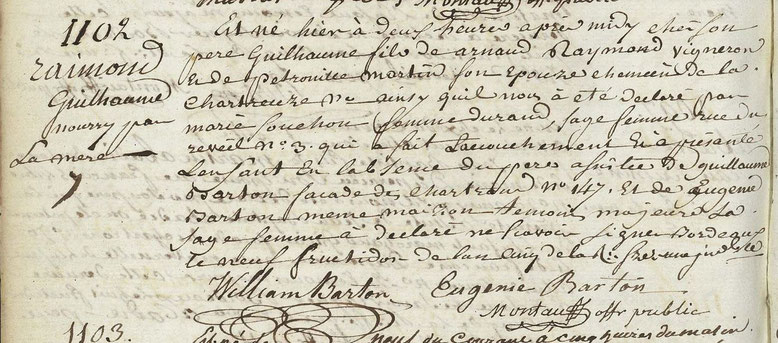 Montauff off public
1102
raimond
Guilhaume
nourry par
La mere
Est né hier à deux heure après midy chés son
pere Guilhaume fils de arnaud Raymond vigneron
et de petronille martin son Epouse chemein de la
Chartreuze no ainsy quil nous à été declaré par
marie Souchon femme durand, sage femme rue du
reveil no. 3. qui a fait Lacouchement Et a présenté
Lenfant En labsence du pere assistée De guillaume
Barton facade des chartrons no 147. Et de Eugenie
Barton meme maison temoins majeurs La
sage femme à déclaré ne savoir Signer Bordeaux
le neuf fructidor de lan cinq de la
William Barton Eugenie Barton
Montauff off public
1103.
neuf du Courant a cinq heures du matin